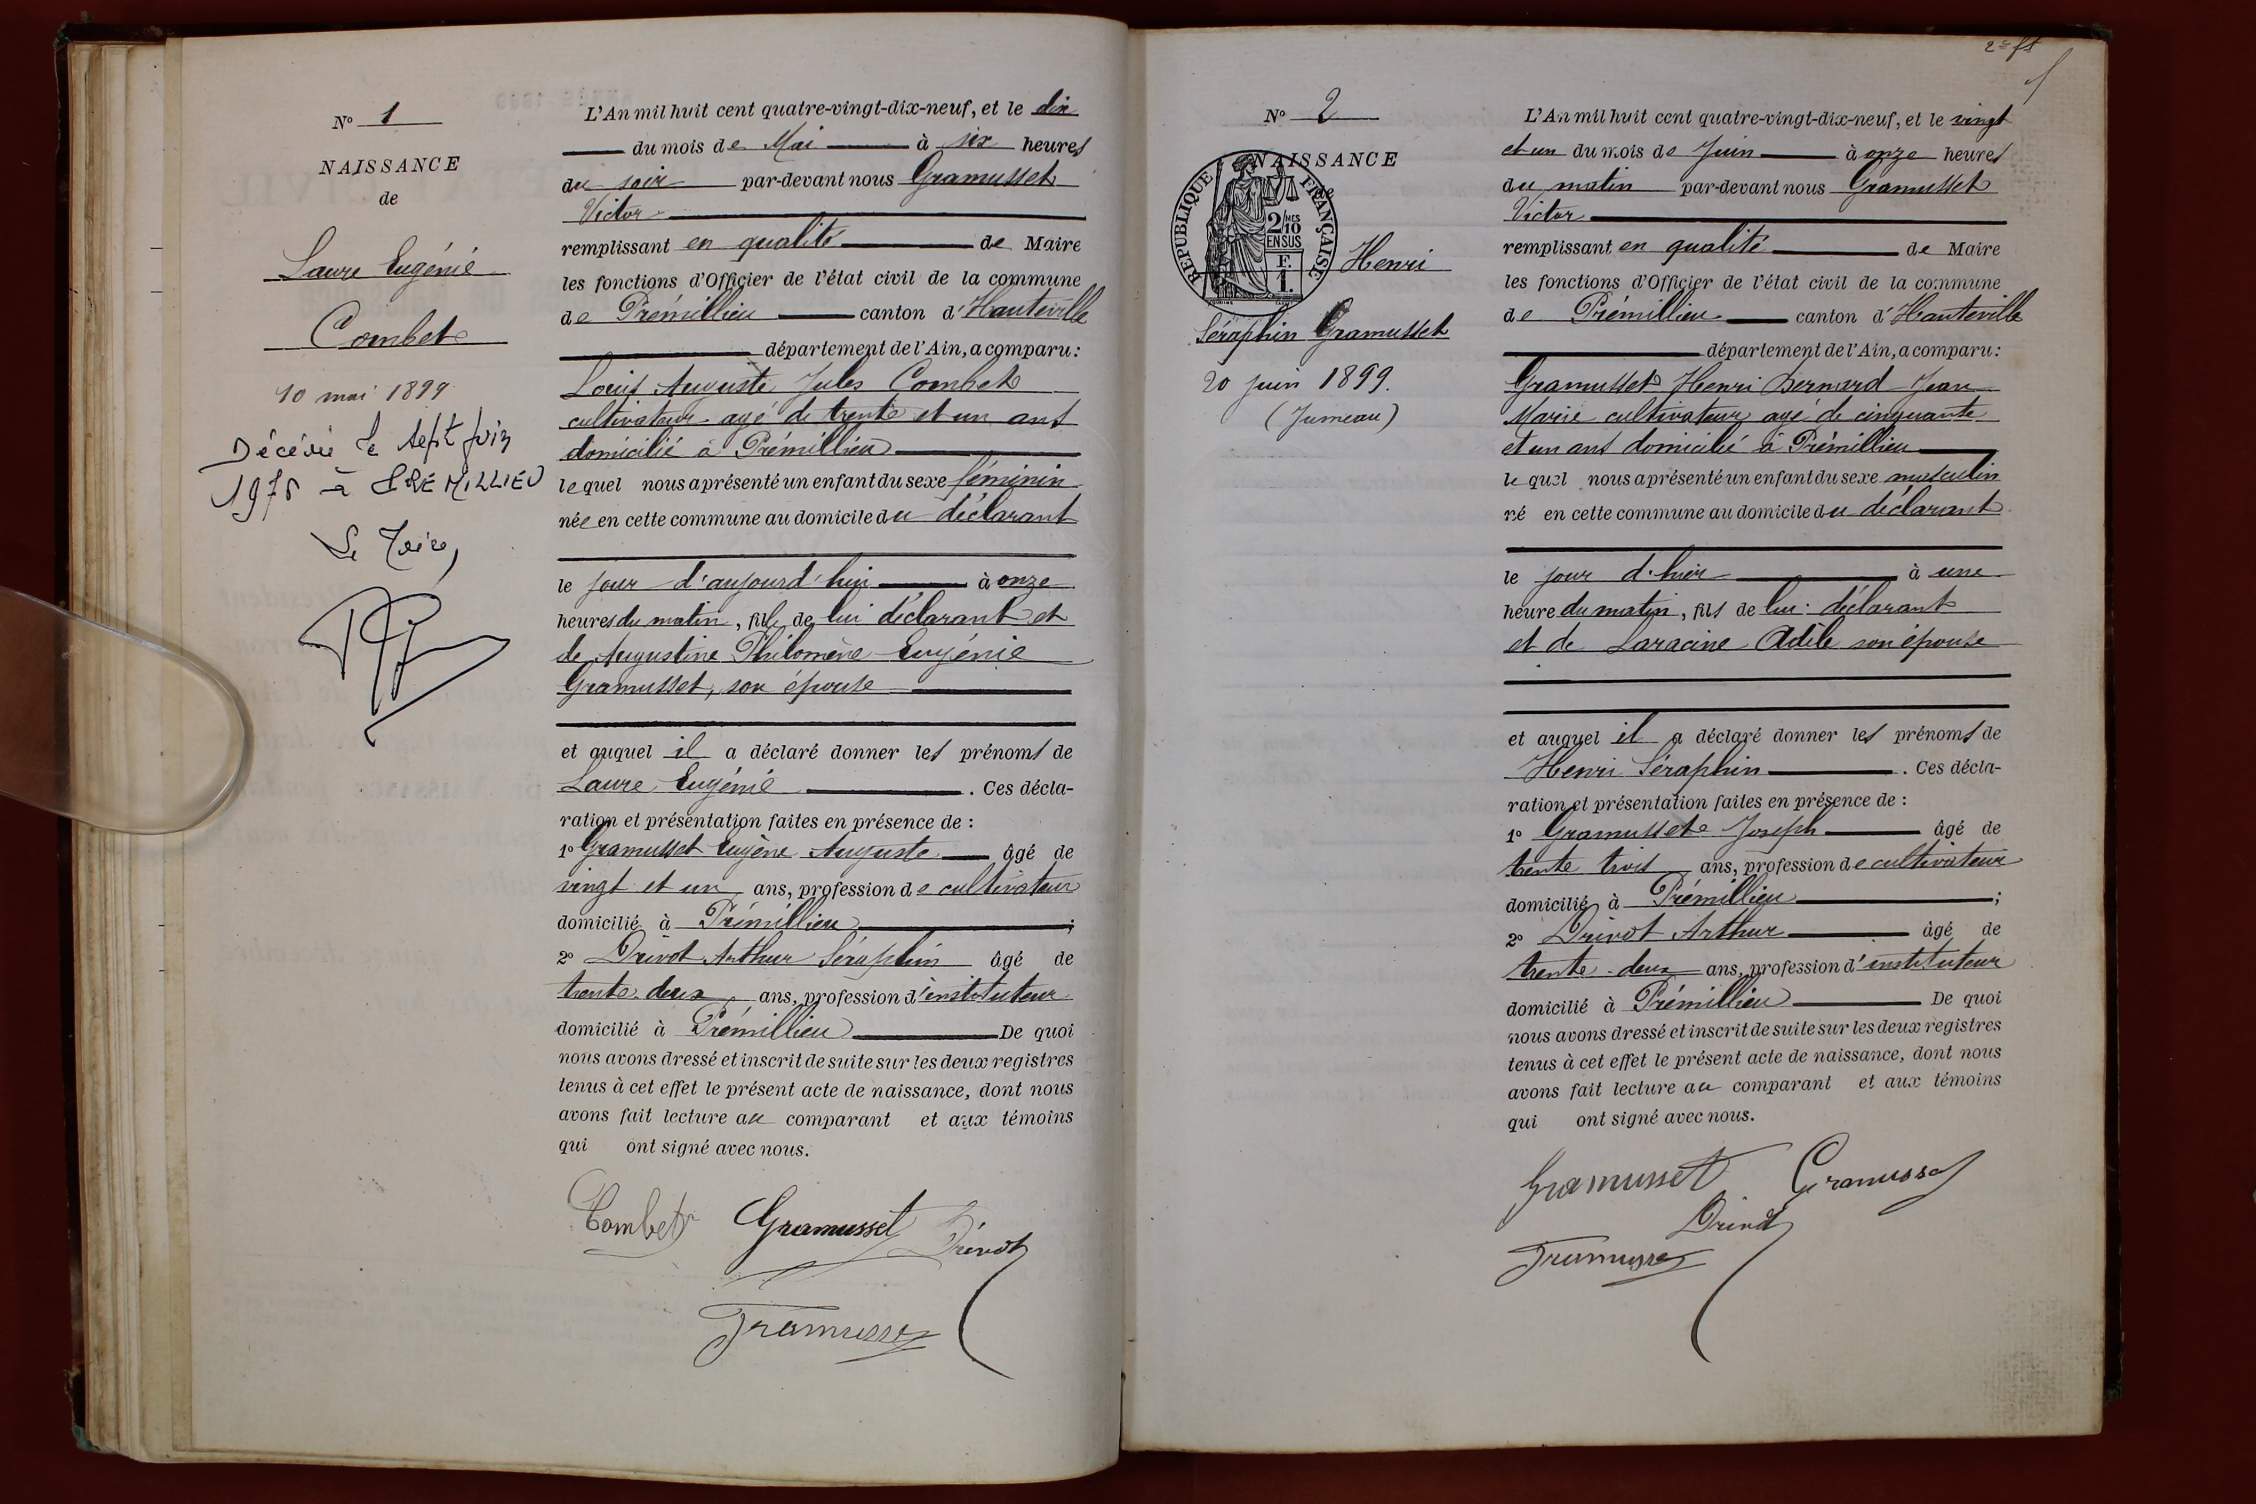 N° 1
NAISSANCE
de
Laure Eugénie
Combet
10 mai 1899
Décédée le sept juin
à PREMILLIEU
Le Maire,
L'An mil huit cent quatre-vingt-dix-neuf, et le dix
du mois de Mai à six heures
du soir par-devant nous Gramusset
Victor
remplissant en qualité de Maire
les fonctions d'Officier de l'état civil de la commune
de Prémillieu canton d'Hauteville
département de l'Ain, a comparu :
Louis Auguste Jules Combet
cultivateur agé de trente et un ans
domicilié à Prémillieu
lequel nous a présenté un enfant du sexe féminin
née en cette commune au domicile du déclarant
le jour d'aujourd'hui à onze
heures du matin, fille de lui déclarant et
de Augustine Philomène Eugénie
Gramusset, son épouse
et auquel il a déclaré donner les prénoms de
Laure Eugénie . Ces décla-
ration et présentation faites en présence de :
1° Gramusset Eugène Auguste âgé de
vingt et un ans, profession de cultivateur
domicilié à Prémillieu ;
2° Drivot Arthur Séraphin âgé de
trente-deux ans, profession d'instituteur
domicilié à Prémillieu De quoi
nous avons dressé et inscrit de suite sur les deux registres
tenus à cet effet le présent acte de naissance, dont nous
avons fait lecture au comparant et aux témoins
qui ont signé avec nous.
Combet Gramusset Drivot
Gramusset
2e ft
N° 2
NAISSANCE
de
RÉPUBLIQUE FRANÇAISE
2/10 MES
EN SUS
F.
1.
Henri
Séraphin Gramusset
20 juin 1899.
(Jumeau)
L'An mil huit cent quatre-vingt-dix-neuf, et le vingt
et un du mois de Juin à onze heures
du matin par-devant nous Gramusset
Victor
remplissant en qualité de Maire
les fonctions d'Officier de l'état civil de la commune
de Prémillieu canton d'Hauteville
département de l'Ain, a comparu :
Gramusset Henri Bernard Jean
Marie cultivateur agé de cinquante
et un ans domicilié à Prémillieu
lequel nous a présenté un enfant du sexe masculin
né en cette commune au domicile du déclarant
le jour d'hier à une
heure du matin, fils de lui déclarant
et de Laracine Adèle son épouse
et auquel il a déclaré donner les prénoms de
Henri Séraphin . Ces décla-
ration et présentation faites en présence de :
1° Gramusset Joseph âgé de
trente trois ans, profession de cultivateur
domicilié à Prémillieu ;
2° Drivot Arthur âgé de
trente-deux ans, profession d'instituteur
domicilié à Prémillieu De quoi
nous avons dressé et inscrit de suite sur les deux registres
tenus à cet effet le présent acte de naissance, dont nous
avons fait lecture au comparant et aux témoins
qui ont signé avec nous.
Gramusset Gramusset
Drivot
Gramusset